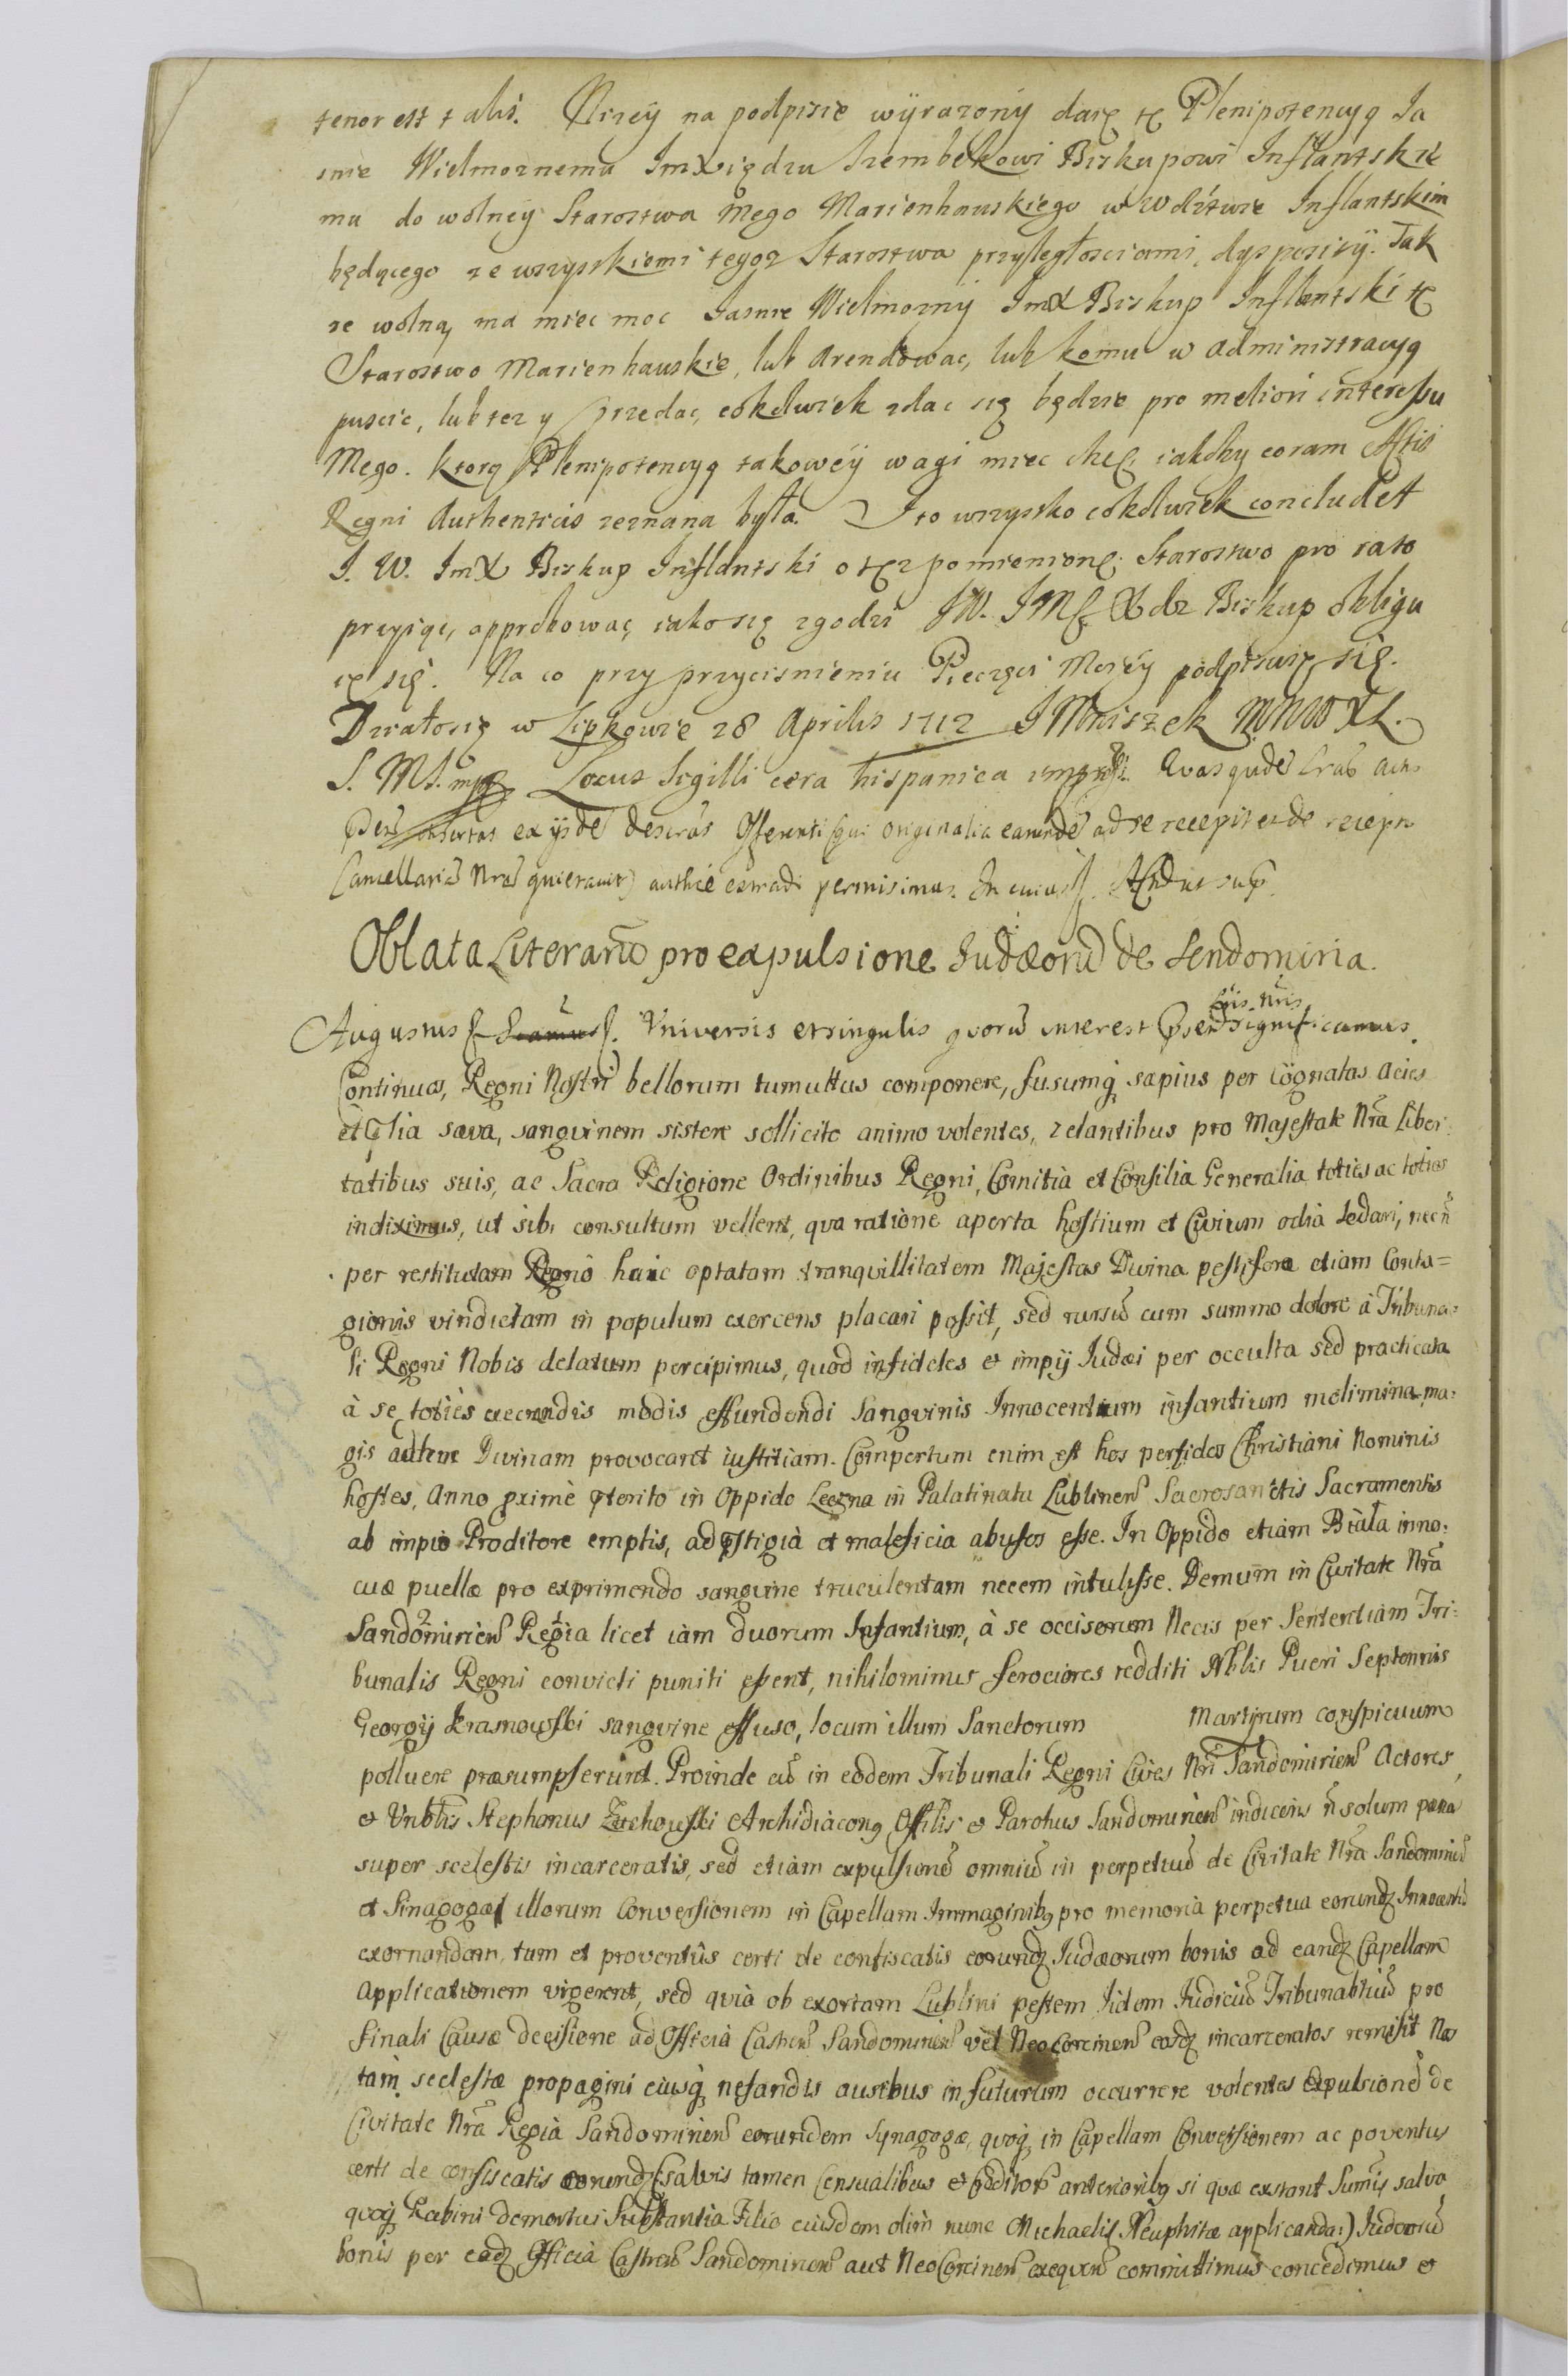 tenor est talis. Nizey na podpisie wÿrazonÿ daię tę Plenipotencyą Ja
snie Wielmoznemu ImXiędzu Szembekowi Biskupowi Inflantskie
mu do wolneÿ Starostwa mego Marienhauskiego w Wdztwie Inflantskim
będęcego ze wszystkiemi tegoz Starostwa przyległosciami, dyspozitÿ. Tak
ze wolną ma miec moc Jasnie Wielmoznÿ ImX Biskup Inflantski tę
Starostwo Marienhauskie, lub Arendowac, lub komu w administracyą
puscic, lub tez y przedac, cokolwiek zdac się będzie pro meliori interessu
Mego. Ktorą Plenipotencyą takoweÿ wagi miec chcę iakoby coram Actis
Regni Authenticis zeznana była. I to wszystko cokolwiek concludet
J. W. ImX Biskup Inflantski o tęz pomienionę Starostwo pro rato
przyiąc, approbowac, iako się zgodzi JW. JMſ Xdz Biskup obligu
ię się. Na co przy przycisnieniu Pieczęci Moieÿ podpisuię się.
Działo się w Lipkowie 28 Aprilis 1712 J Mniszek MNWXL.
S. Ms. mp Locus Sigilli cera hispanica impressi. Quas quidē Lrās actis
Pñtibꝰ insertas ex ijsdē descrās Offerenti (qui originalia earundē ad se recepit et de receptis
Cancellariā Nrām quietavit) authcē extradi permisimus. In cuiusſſ. Actū Dat ut sup.
Oblata Literarū pro expulsione Judæorū de Sendomiria.
Augustus ſſ. Universis et singulis quorū interest Pñtibꝰ Lris Nris significamus.
Continuos, Regni Nostri bellorum tumultus componere, fusumq̃ sæpius per cognatas acies
et prælia sæva, sangvinem sistere sollicito animo volentes, zelantibus pro Majestate Nrã Liber-
tatibus suis, ac Sacra Religione Ordinibus Regni, Comitia et Consilia Generalia toties ac toties
indiximus, ut sibi consultum vellent, qua ratione aperta hostium et Civium odia sedari, necñ
per restitutam Regno huic optatam tranquillitatem Majestas Divina pestifera etiam Conta=
gionis vindictam in populum exercens placari possit, sed rursū cum summo dolore à Tribuna-
li Regni Nobis delatum percipimus, quod infideles et impij Judæi per occulta sed practicata
à se toties execrandis modis effundendi Sangvinis Innocentium infantium molimina ma-
gis autem Divinam provocaret iustitiam. Compertum enim est hos perfidos Christiani Nominis
hostes, Anno proximè præterito in Oppido Leczna in Palatinatu Lublinensi Sacrosanctis Sacramentis
ab impio Proditore emptis, ad præstigia et maleficia abusos esse. In Oppido etiam Biała inno-
cuæ puellæ pro exprimendo sangvine truculentam necem intulisse. Demum in Civitate Nrã
Sandomiriensi Regia licet iam duorum Infantium, à se occisorum Necis per Sententiam Tri-
bunalis Regni convicti puniti essent, nihilominus ferociores redditi Nblis Pueri Septennis
Georgij Krasnowski sangvine effuso, locum illum Sanctorum Martyrum conspicuum
polluere præsumpserunt. Proinde cū in eodem Tribunali Regni Cives Nri Sandomirienses Actores,
et Vnblis Stephanus Zuchowski Archidiaconꝰ Offlis et Parochus Sandomiriensis indicens ñ solum pæna
super scelestis incarceratis, sed etiam expulsionē omniū in perpetuū de Civitate Nrã Sandomiriē
et Sinagogæ illorum Conversionem in Capellam Immaginibꝰ pro memoria perpetua eorundē Innocentiū
exornandam, tum et proventûs certi de confiscatis eorundē Judæorum bonis ad eandē Capellam
Applicationem vigerent, sed quia ob exortam Lublini pestem Jidem Judiciū Tribunalitiū pro
finali Causæ decisione ad Officia Castren̄ Sandomirien̄ vel NeoCorcinen̄ eosdē incarceratos remisit Nos
tam scelestæ propagini eiusq̃ nefandis ausibus in futurum occurrere volentes expulsionē de
Civitate Nrã Regia Sandomirien̄ eorundem Synagogæ, quoq̃ in Capellam Conversionem ac poventus
certi de confiscatis eorundē (salvis tamen Censualibus et Creditorū anterioribꝰ si quæ exstant Sumis salva
quoq̃ Rabini demortui Substantia Filio eiusdem olim nunc Michaelis Neuphitæ applicanda:) Judæorū
bonis per eadē Officia Castren̄ Sandomirien̄ aut NeoCorcinen̄ exequen̄ committimus concedimus et